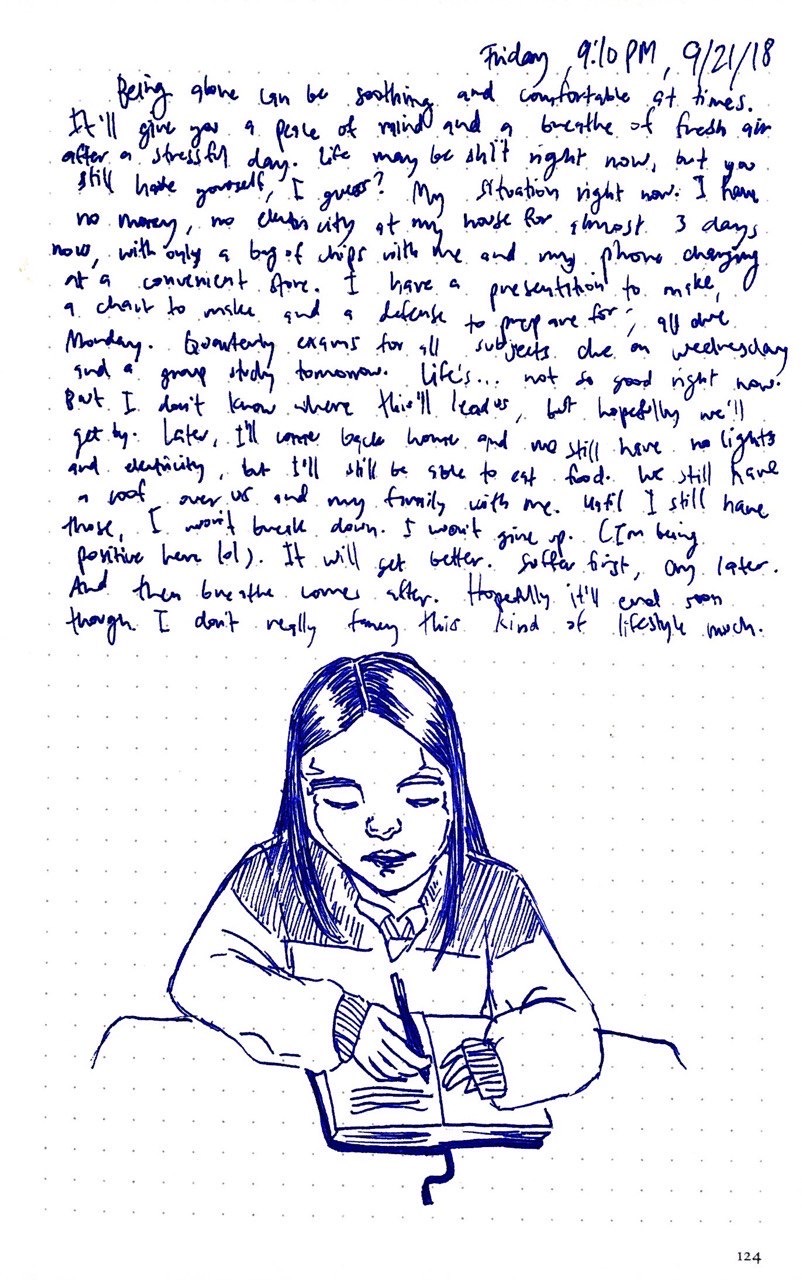 Friday, 9:10 PM, 9/21/18
Being alone can be soothing and comfortable at times.
It'll give you a peace of mind and a breathe of fresh air
after a stressful day. Life may be shit right now, but you
still have yourself, I guess? My situation right now: I have
no money, no electricity at my house for almost 3 days
now, with only a bag of chips with me and my phone charging
at a convenient store. I have a presentition to make,
a chart to make and a defense to prepare for; all due
Monday. Quarterly exams for all subjects due on wednesday
and a group study tomorrow. Life's... not so good right now.
But I don't know where this'll lead us, but hopefully we'll
get by. Later, I'll come back home and we still have no lights
and electricity, but I'll still be able to eat food. We still have
a roof over us and my family with me. Until I still have
those, I won't break down. I won't give up. (I'm being
positive here lol). It will get better. Suffer first, cry later.
And then breathe comes after. Hopefully it'll end soon
though. I don't really fancy this kind of lifestyle much.
124